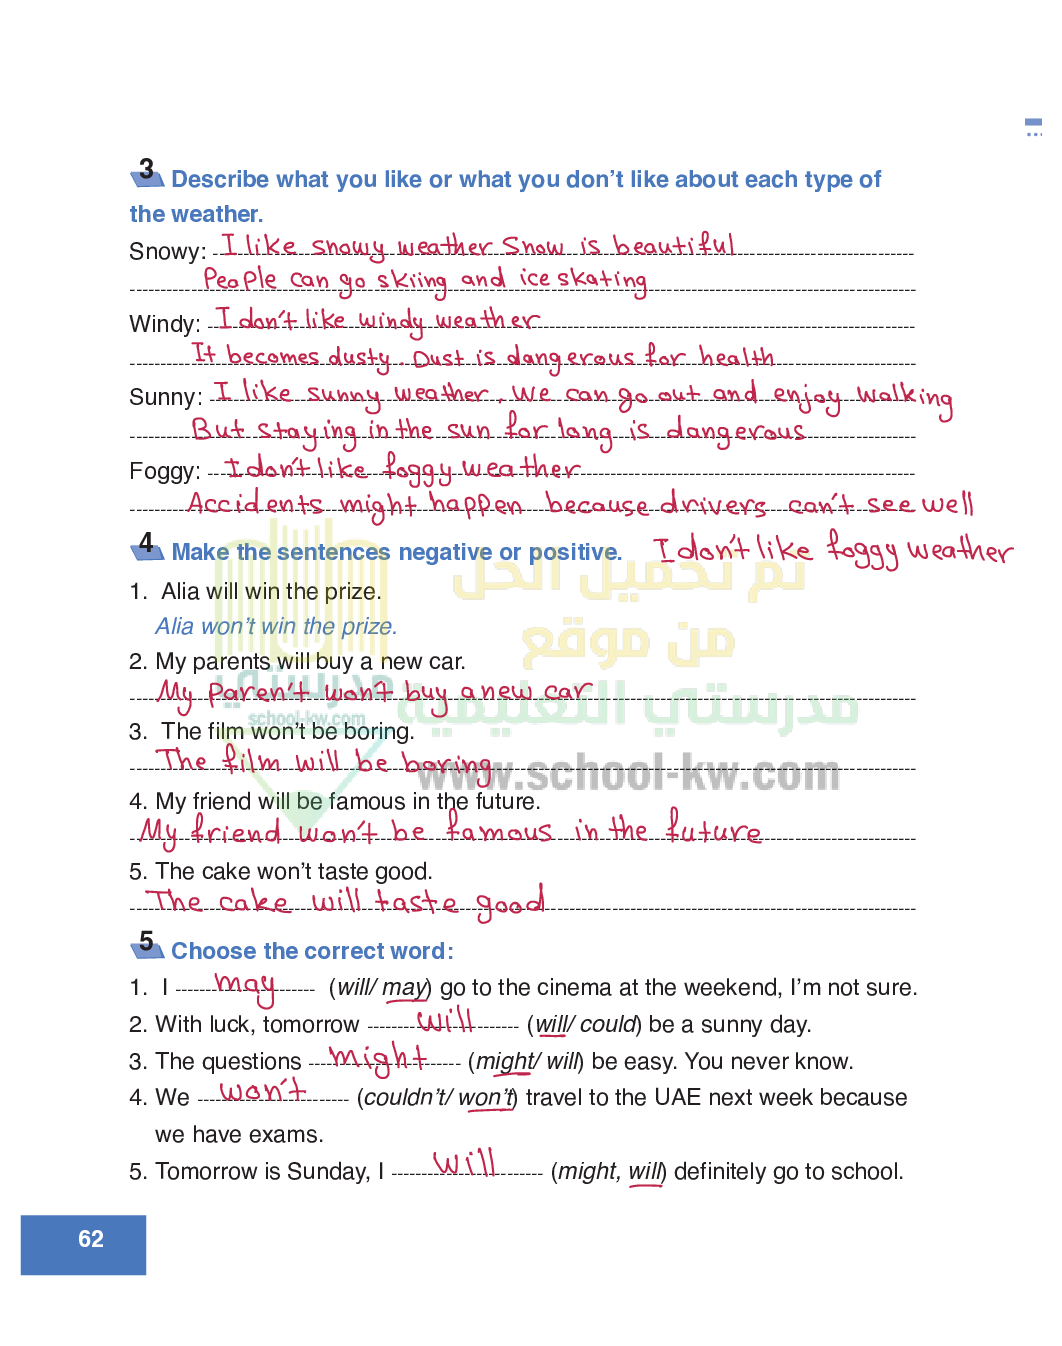 3 Describe what you like or what you don't like about each type of
the weather.
Snowy: I like snowy weather Snow is beautiful
People can go skiing and ice skating
Windy: I don't like windy weather
It becomes dusty. Dust is dangerous for health
Sunny: I like sunny weather. We can go out and enjoy walking
But staying in the sun for long is dangerous
Foggy: I don't like foggy weather
Accidents might happen because drivers can't see well
4 Make the sentences negative or positive. I don't like foggy weather
تم تحميل الحل
1. Alia will win the prize.
Alia won't win the prize.
من موقع
2. My parents will buy a new car.
My Paren't won't buy a new car
مدرستي
مدرستي التعليمية
school-kw.com
3. The film won't be boring.
The film will be boring
www.school-kw.com
4. My friend will be famous in the future.
My friend won't be famous in the future
5. The cake won't taste good.
The cake will taste good
5 Choose the correct word:
1. I may (will/ may) go to the cinema at the weekend, I'm not sure.
2. With luck, tomorrow will (will/ could) be a sunny day.
3. The questions might (might/ will) be easy. You never know.
4. We won't (couldn't/ won't) travel to the UAE next week because
we have exams.
5. Tomorrow is Sunday, I will (might, will) definitely go to school.
62